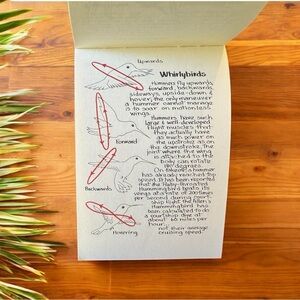 Upwards
Whirlybirds
Hummers fly upwards,
forward, backwards,
sideways, upside-down &
hover, the only maneuver
a hummer cannot manage
is to soar on motionless
wings.
Hummers have such
large & well-developed
flight muscles that
they actually have
as much power on
the upstroke as on
the downstroke. The
joint where the wing
is attached to the
body can rotate
180 degrees.
Forward
On takeoff a hummer
has already reached top
speed. It has been reported
that the Ruby-throated
Hummingbird beats its
wings at a rate of 200 times
per second during court-
ship flight. the Allen's
Hummingbird has
been calculated to do
a courtship dive at
about 60 miles per
hour,
not their average
cruising speed.
Backwards
Hovering